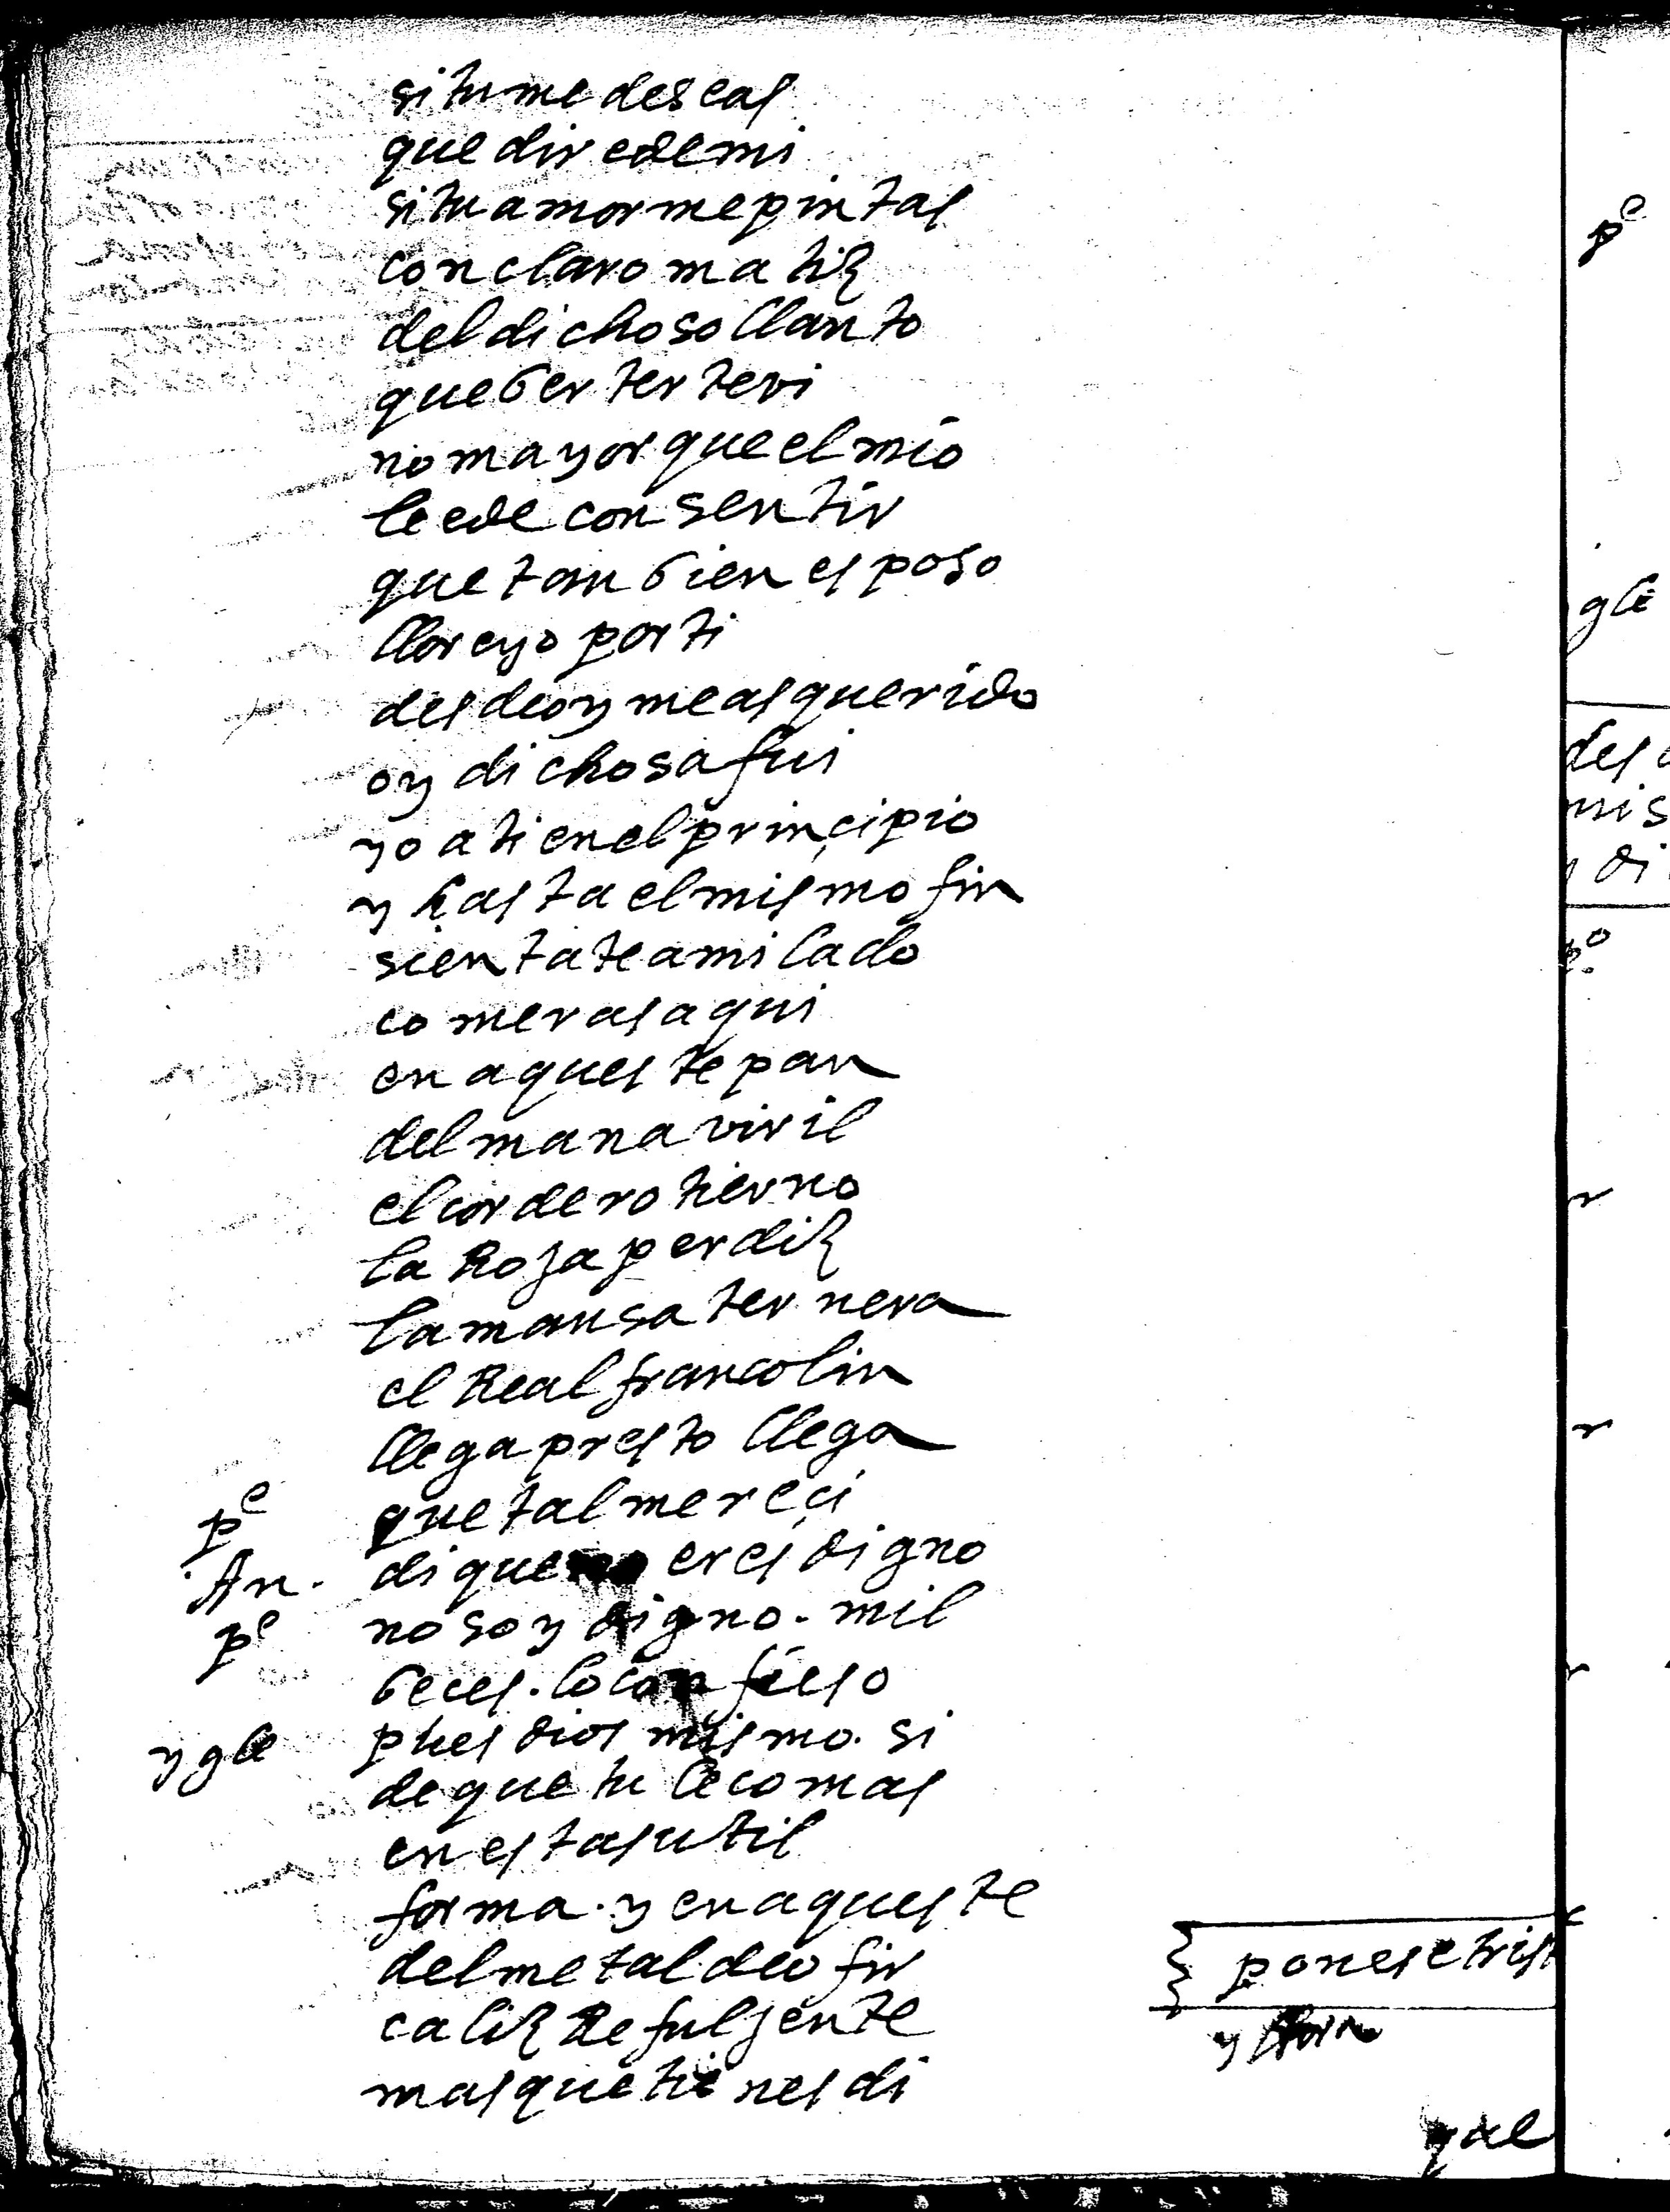 si tu me deseas
que dire de mi
si tu amor me pintas
con claro matiz
del dichoso llanto
que berter te vi
no mayor que el mio
le e de consentir
que tanbien esposo
llore yo por ti
desde oy me as querido
oy dichosa fui
yo a ti en el principio
y hasta el mismo fin
sientate a mi lado
comeras aqui
en aqueste pan
del mana viril
el cordero tierno
la Roja perdiz
la mansa ternera
el Real francolin
llega presto llega
pe que tal mereçi
An. di que eres digno
pe no soy digno. mil
beces. lo confieso
ygle pues dios mismo. si
de que tu le comas
en esta sutil
forma. y en aqueste
del metal de ofir
caliz Refuljente
mas que tienes di
ponese trist
y
que
pe
gle